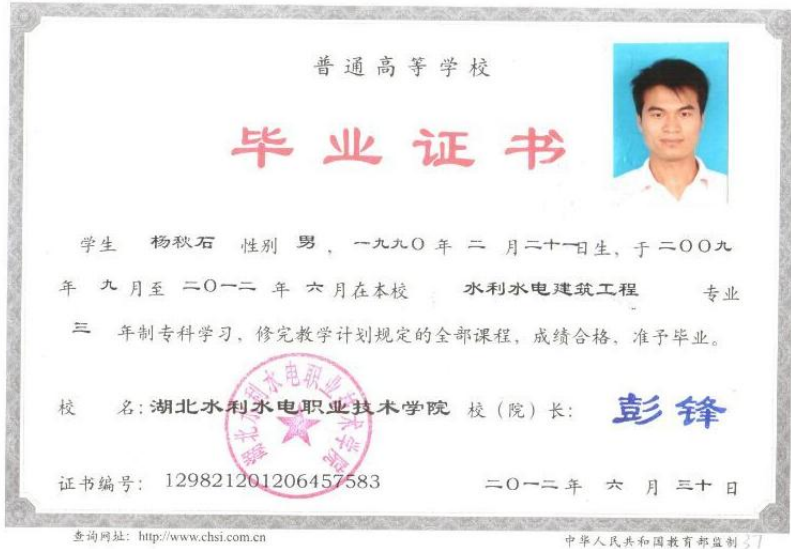 普通高等学校
毕业证书
学生 杨秋石 性别 男 ，一九九〇 年 二 月二十一日生，于 二〇〇九
年 九 月至 二〇一二 年 六 月在本校 水利水电建筑工程 专业
三 年制专科学习，修完教学计划规定的全部课程，成绩合格，准予毕业。
校 名：湖北水利水电职业技术学院 校（院）长： 彭锋
湖北水利水电职业技术学院
证书编号： 129821201206457583 二〇一二年 六 月 三十 日
查询网址：http://www.chsi.com.cn 中华人民共和国教育部监制 37